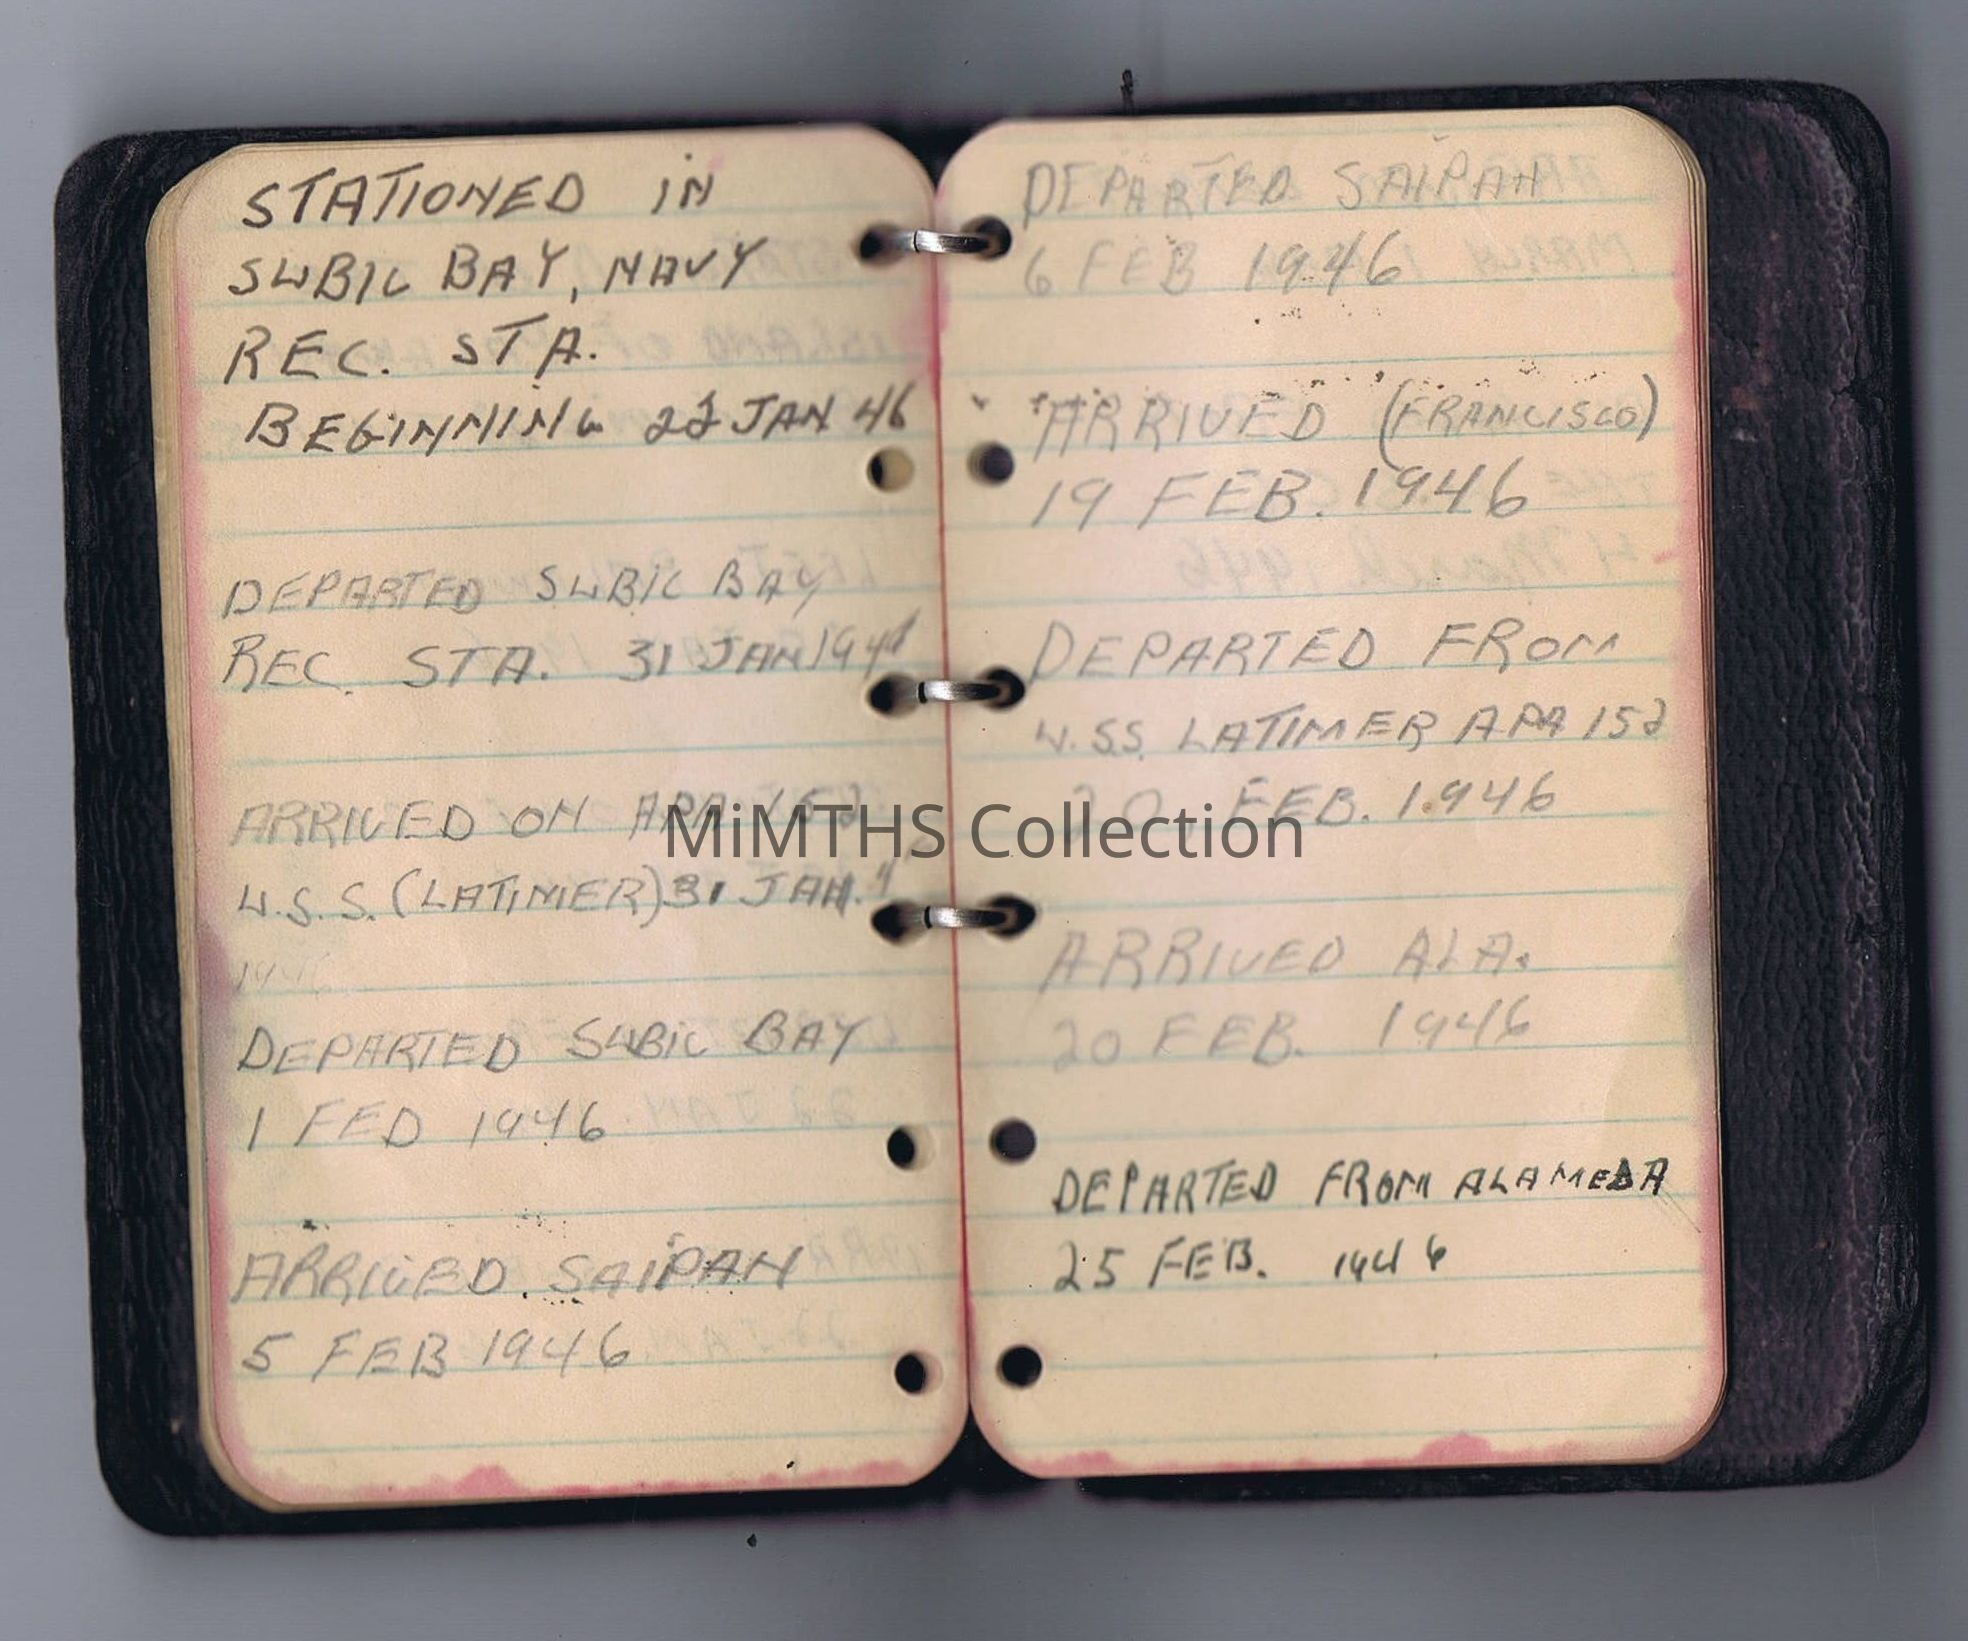 STATIONED IN
SUBIC BAY, NAVY
REC. STA.
BEGINNING 22 JAN 46
DEPARTED SUBIC BAY
REC. STA. 31 JAN 194
ARRIVED ON APA 152
U.S.S. (LATIMER) 31 JAN.
1946
DEPARTED SUBIC BAY
1 FED 1946
ARRIVED SAIPAN
5 FEB 1946
DEPARTED SAIPAN
6 FEB 1946
ARRIVED (FRANCISCO)
19 FEB. 1946
DEPARTED FROM
U.S.S. LATIMER APA 152
20 FEB. 1946
ARRIVED ALA.
20 FEB. 1946
DEPARTED FROM ALAMEDA
25 FEB. 1946
MiMTHS Collection